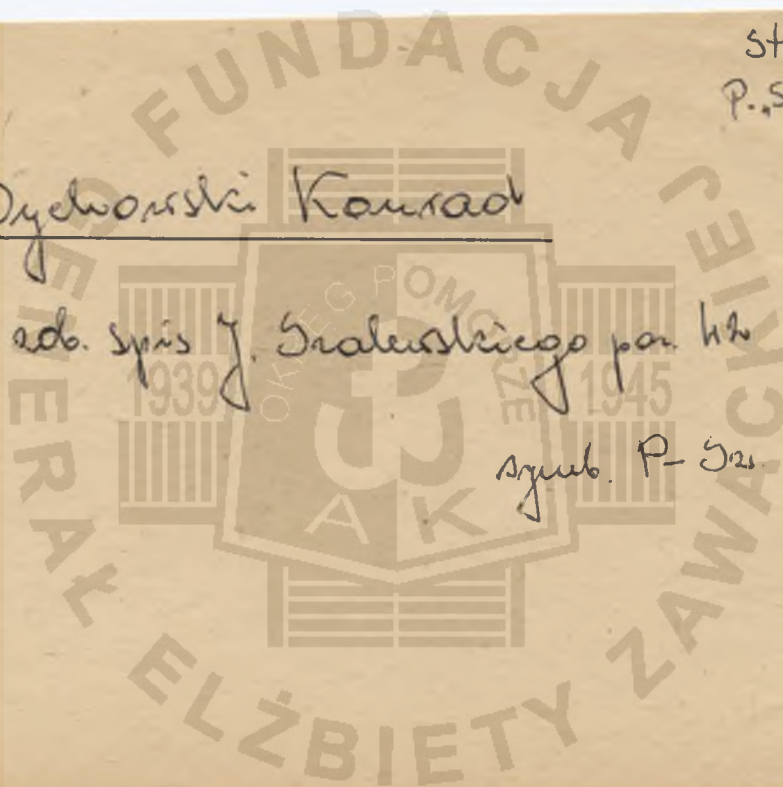 St
P. „S
Dychowski Konrad
zob. spis J. Szalewskiego poz. 42
symb. P-Szs.
FUNDACJA
GENERAŁ ELŻBIETY ZAWACKIEJ
OKRĘG POMORZE
1939 1945
AK